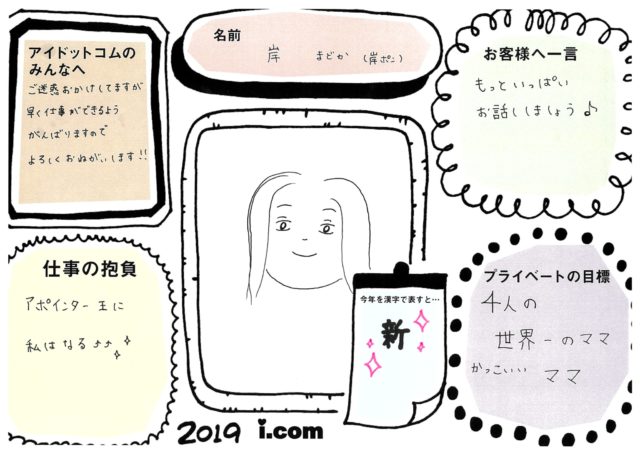 アイドットコムの
みんなへ
ご迷惑おかけしてますが
早く仕事ができるよう
がんばりますので
よろしくおねがいします!!
名前
岸 まどか (岸ポン)
お客様へ一言
もっといっぱい
お話ししましょう♪
仕事の抱負
アポインター王に
私はなる♪♪
今年を漢字で表すと…
新
プライベートの目標
4人の
世界一のママ
かっこいい ママ
2019 i.com